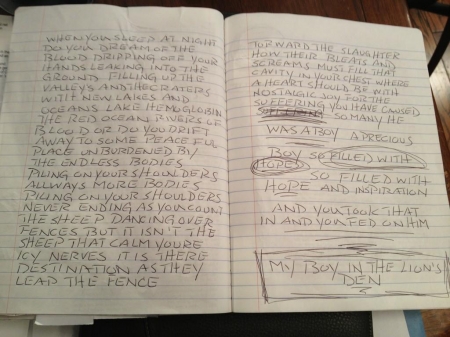 WHEN YOU SLEEP AT NIGHT
DO YOU DREAM OF THE
BLOOD DRIPPING OFF YOUR
HANDS LEAKING INTO THE
GROUND FILLING UP THE
VALLEYS AND THE CRATERS
WITH NEW LAKES AND
OCEANS LAKE HEMOGLOBIN
THE RED OCEAN RIVERS OF
BLOOD OR DO YOU DRIFT
AWAY TO SOME PEACEFUL
PLACE UNBURDENED BY
THE ENDLESS BODIES
PILING ON YOUR SHOULDERS
ALLWAYS MORE BODIES
PILING ON YOUR SHOULDERS
NEVER ENDING AS YOU COUNT
THE SHEEP DANCING OVER
FENCES BUT IT ISN'T THE
SHEEP THAT CALM YOURE
ICY NERVES IT IS THERE
DESTINATION AS THEY
LEAP THE FENCE
TORWARD THE SLAUGHTER
HOW THEIR BLEATS AND
SCREAMS MUST FILL THAT
CAVITY IN YOUR CHEST WHERE
A HEART SHOULD BE WITH
NOSTALGIC JOY FOR THE
SUFFERING YOU HAVE CAUSED
SO MANY HE
WAS A BOY A PRECIOUS
BOY SO FILLED WITH
HOPES SO FILLED WITH
HOPE AND INSPIRATION
AND YOU TOOK THAT
IN AND YOU FED ON HIM
MY BOY IN THE LION'S
DEN